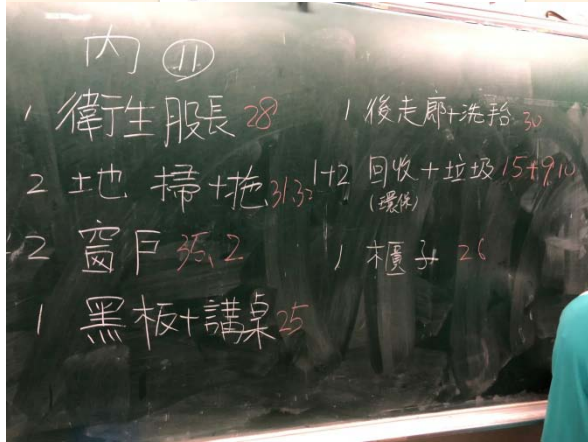 內 ⑪
1 衛生股長 28
2 地 掃+拖 31.32
2 窗戶 35、2
1 黑板+講桌 25
1 後走廊+洗手台 30
1+2 回收+垃圾 15+9.10
(環保)
1 櫃子 26